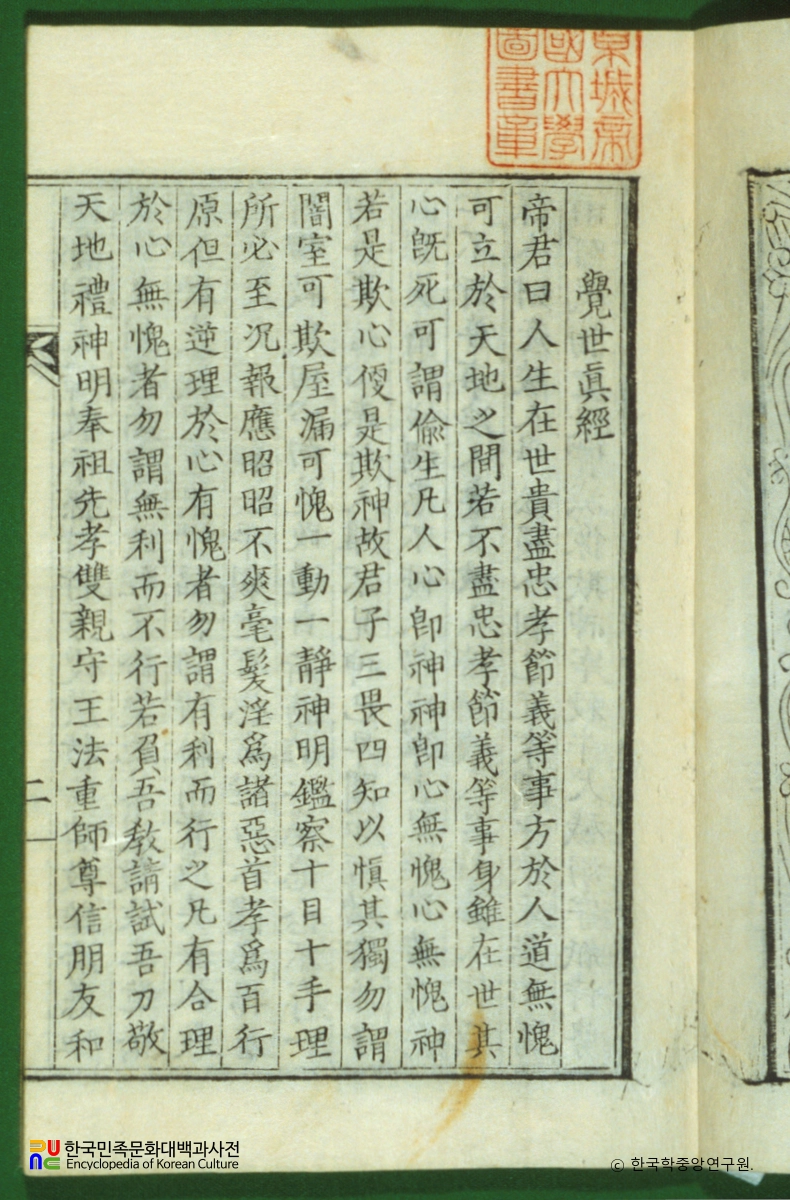 京城帝
國大學
圖書章
覺世眞經
帝君曰人生在世貴盡忠孝節義等事方於人道無愧
可立於天地之間若不盡忠孝節義等事身雖在世其
心旣死可謂偸生凡人心卽神神卽心無愧心無愧神
若是欺心便是欺神故君子三畏四知以愼其獨勿謂
闇室可欺屋漏可愧一動一靜神明鑑察十目十手理
所必至况報應昭昭不爽毫髮淫爲諸惡首孝爲百行
原但有逆理於心有愧者勿謂有利而行之凡有合理
於心無愧者勿謂無利而不行若負吾敎請試吾刀敬
天地禮神明奉祖先孝雙親守王法重師尊信朋友和
二
한국민족문화대백과사전
Encyclopedia of Korean Culture
© 한국학중앙연구원.